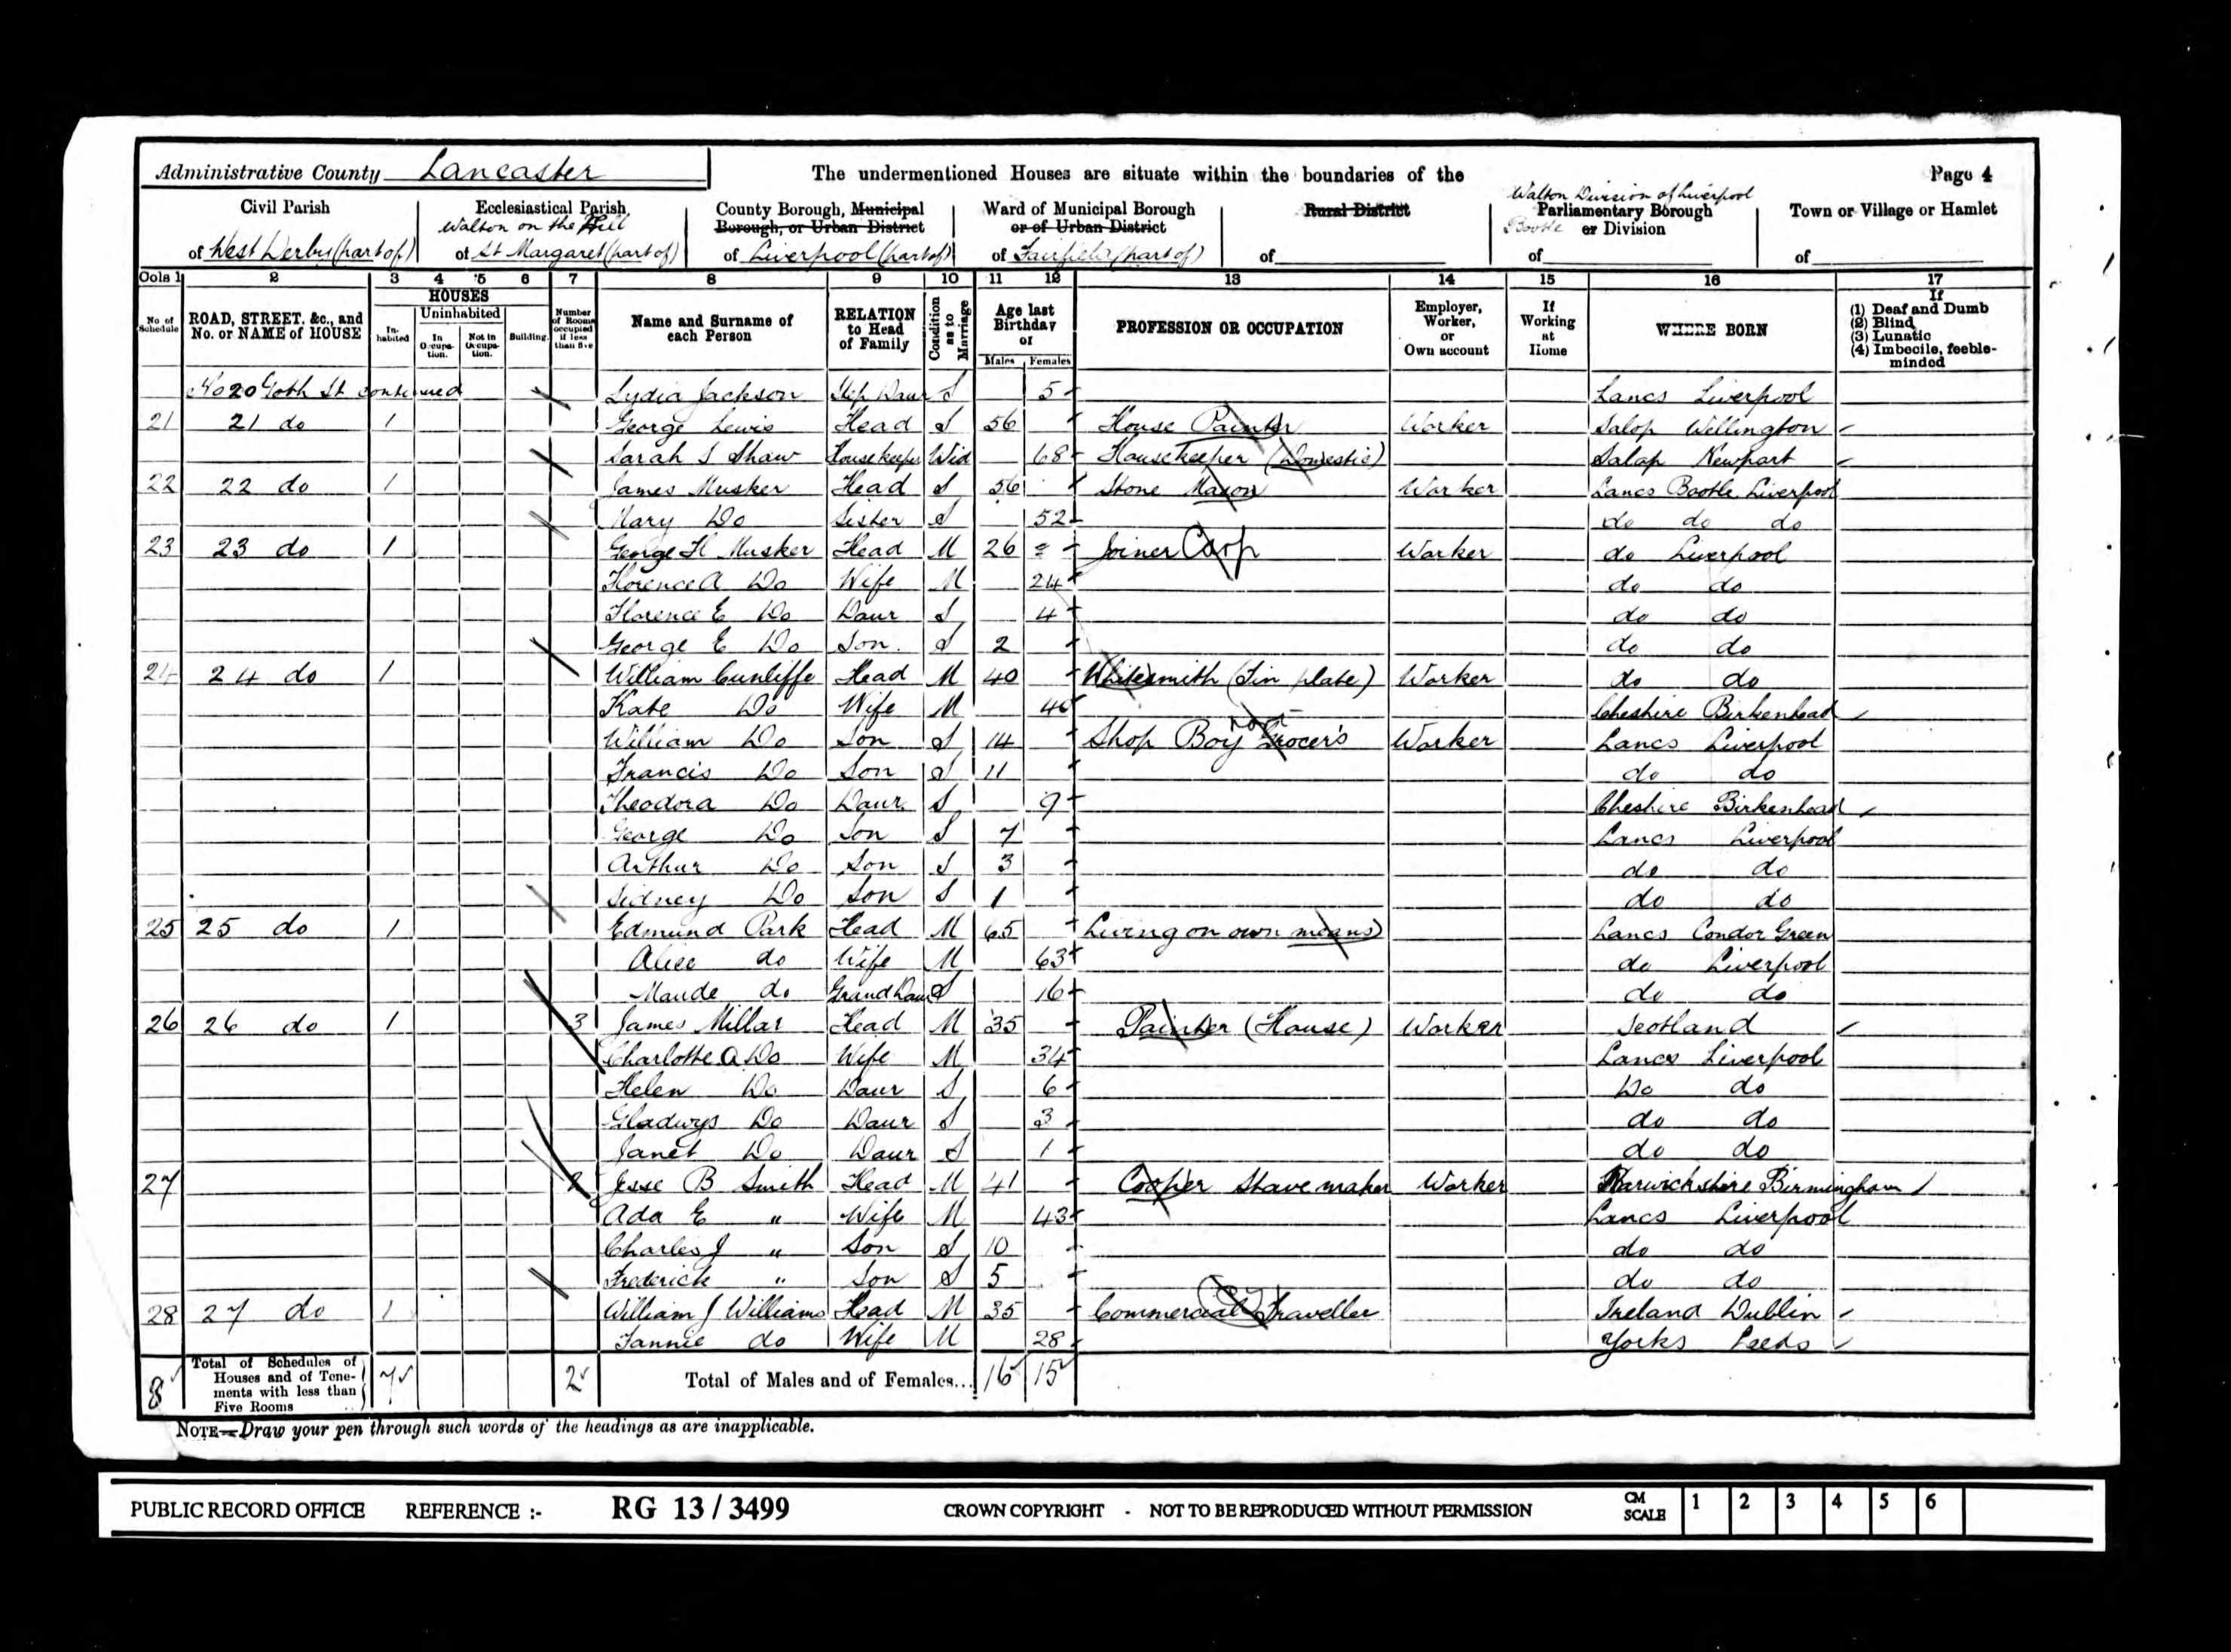 Administrative County Lancaster
The undermentioned Houses are situate within the boundaries of the
Page 4
Civil Parish
of West Derby (part of)
Ecclesiastical Parish
Walton on the Hill
of St Margaret (part of)
County Borough, Municipal
Borough, or Urban District
of Liverpool (part of)
Ward of Municipal Borough
or of Urban District
of Fairfield (part of)
Rural District
of
Walton Division of Liverpool
Parliamentary Borough
Bootle or Division
of
Town or Village or Hamlet
of
Cols 1 2 3 4 5 6 7 8 9 10 11 12 13 14 15 16 17
No of Schedule
ROAD, STREET, &c., and No. or NAME of HOUSE
HOUSES
Inhabited
Uninhabited
In Occupation.
Not in Occupation.
Building.
Number of Rooms occupied if less than five
Name and Surname of each Person
RELATION to Head of Family
Condition as to Marriage
Age last Birthday of
Males Females
PROFESSION OR OCCUPATION
Employer, Worker, or Own account
If Working at Home
WHERE BORN
If
(1) Deaf and Dumb
(2) Blind
(3) Lunatic
(4) Imbecile, feeble-minded
No 20 St continued Lydia Jackson Step Daur S 5 Lancs Liverpool
21 21 do 1 George Lewis Head S 56 House Painter Worker Salop Wellington
Sarah S Shaw Housekeeper Wid 68 Housekeeper (Domestic) Salop Newport
22 22 do 1 James Musker Head S 56 Stone Mason Worker Lancs Bootle Liverpool
Mary Do Sister S 52 do do do
23 23 do 1 George H Musker Head M 26 Joiner Carp Worker do Liverpool
Florence A Do Wife M 24 do do
Florence E Do Daur S 4 do do
George E Do Son S 2 do do
24 24 do 1 William Cunliffe Head M 40 Whitesmith (Tin plate) Worker do do
Kate Do Wife M 40 Cheshire Birkenhead
William Do Son S 14 Shop Boy Grocer's Worker Lancs Liverpool
Francis Do Son S 11 do do
Theodora Do Daur. S 9 Cheshire Birkenhead
George Do Son S 7 Lancs Liverpool
Arthur Do Son S 3 do do
Sidney Do Son S 1 do do
25 25 do 1 Edmund Park Head M 65 Living on own means) Lancs Condor Green
Alice do Wife M 63 do Liverpool
Maude do Grand Daur S 16 do do
26 26 do 1 3 James Millar Head M 35 Painter (House) Worker Scotland
Charlotte A Do Wife M 34 Lancs Liverpool
Helen Do Daur S 6 Do do
Gladwys Do Daur S 3 do do
Janet Do Daur S 1 do do
27 2 Jesse B Smith Head M 41 Cooper Stave maker Worker Warwickshire Birmingham
Ada E " Wife M 43 Lancs Liverpool
Charles J " Son S 10 do do
Frederick " Son S 5 do do
28 27 do 1 William J Williams Head M 35 Commercial Traveller Ireland Dublin
Fannie do Wife M 28 Yorks Leeds
8 Total of Schedules of Houses and of Tenements with less than Five Rooms 7 2 Total of Males and of Females... 16 15
NOTE—Draw your pen through such words of the headings as are inapplicable.
PUBLIC RECORD OFFICE REFERENCE :- RG 13 / 3499 CROWN COPYRIGHT - NOT TO BE REPRODUCED WITHOUT PERMISSION CM SCALE 1 2 3 4 5 6